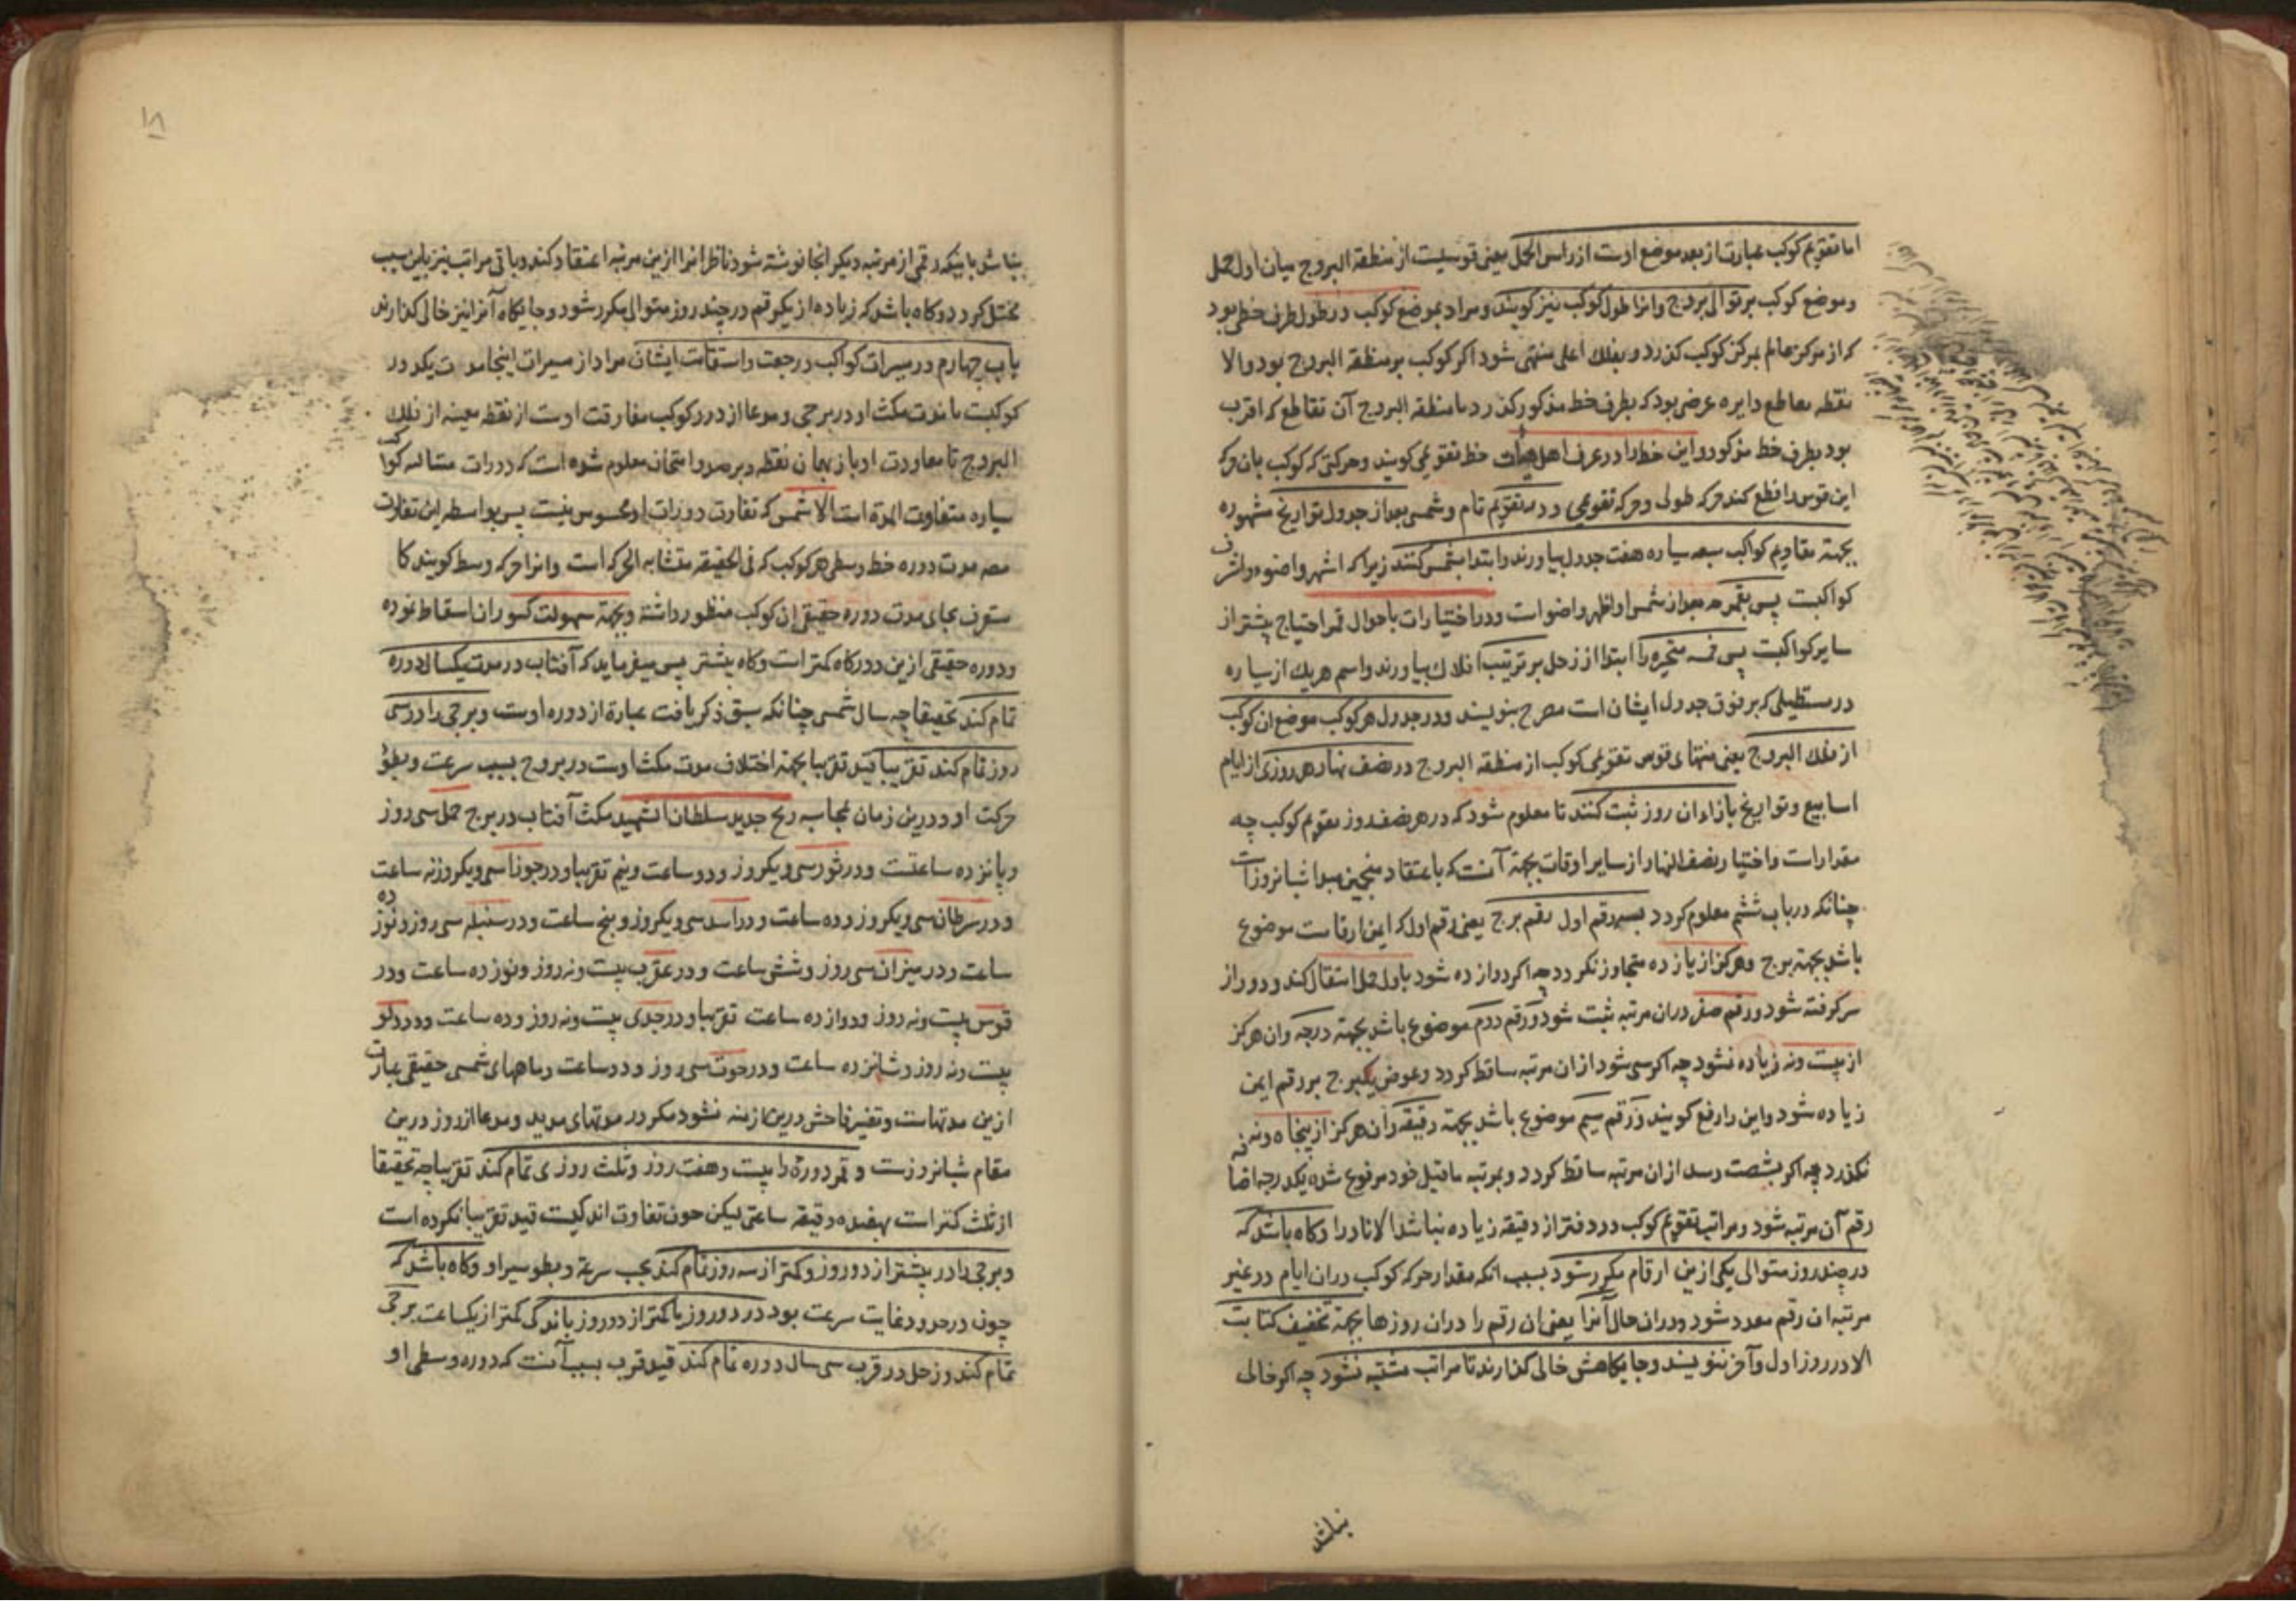 اما تقویم کوکب عبارت از بعد موضع اوست از راس الحمل یعنی قوسیست از منطقة البروج میان اول حمل
و موضع کوکب بر توالی بروج وانرا طول کوکب نیز کویند و مراد بموضع کوکب در طول طرف خطی بود
که از مرکز عالم بمرکز کوکب کذرد و بفلک اعلی منتهی شود اکر کوکب بر منطقة البروج بود والا
نقطه تقاطع دایره عرضی بود که بطرف خط مذکور کذرد با منطقة البروج آن تقاطع که اقرب
بود بطرف خط مذکور و این خط را در عرف اهل هیات خط تقویمی کویند و حرکتی که کوکب بان حرکه
این قوس را قطع کند حرکه طولی و حرکه تقویمی و در تقویم تام و شمسی بعد از جدول تواریخ مشهوره
بجهة تقاویم کواکب سبعه سیاره هفت جدول بیاورند و ابتدا بشمس کنند زیرا که اشهر واضوء واشرف
کواکبست پس بقمر چه بعد از شمس او اظهر واضوا است و در اختیارات باحوال قمر احتیاج بیشتر از
سایر کواکبست پس خمسه متحیره را ابتدا از زحل بر ترتیب افلاک بیاورند و اسم هریک از سیاره
در مستطیلی که بر فوق جدول ایشان است مصرح بنویسند و در جدول هر کوکب موضع ان کوکب
از فلک البروج یعنی منتهای قوس تقویمی کوکب از منطقة البروج در نصف نهار هر روزی از ایام
اسابیع و تواریخ بازاء ان روز ثبت کنند تا معلوم شود که در هر نصف روز تقویم کوکب چه
مقدار است و اختیار نصف النهار از سایر اوقات بجهة آنست که باعتقاد منجمین مبدا شبانروز است
چنانکه در باب ششم معلوم کردد بسه رقم اول رقم برج یعنی رقم اول که ایمن ارقامست موضوع
باشد بجهة برج و هرکز از یازده متجاوز نکردد چه اکر دوازده شود باول حمل انتقال کند و دور از
سر کرفته شود و رقم صفر دران مرتبه ثبت شود و رقم دوم موضوع باشد بجهة درجه وان هرکز
از بیست و نه زیاده نشود چه اکر سی شود از ان مرتبه ساقط کردد و عوض یکبرج بر رقم ایمن
زیاده شود واین را رفع کویند و رقم سیم موضوع باشد بجهة دقیقه و آن هرکز از پنجاه و نه
نکذرد چه اکر بشصت رسد از ان مرتبه ساقط کردد و بمرتبه ماقبل خود مرفوع شده یکدرجه اضافه
رقم آن مرتبه شود و مراتب تقویم کوکب در دفتر از دقیقه زیاده نباشد الا نادرا وکاه باشد که
در چند روز متوالی یکی از ین ارقام مکرر شود بسبب انکه مقدار حرکه کوکب دران ایام در غیر
مرتبه ان رقم معدد شود ودران حال آنرا یعنی ان رقم را دران روزها بجهة تخفیف کتابت
الا در روز اول و آخر ننویسند و جایکاهش خالی کذارند تا مراتب مشتبه نشود چه اکر خالی
نباشد
۱۸
نباشد بانیکه رقمی از مرتبه دیکر انجا نوشته شود ناظر انرا ازین مرتبه اعتقاد کند و باقی مراتب نیز باین سبب
مختل کردد وکاه باشد که زیاده از یک رقم در چند روز متوالی مکرر شود و جایکاه آنرا نیز خالی کذارند
باب چهارم در مسیرات کواکب و رجعت و استقامت ایشان مراد از مسیرات اینجا مدت یکدور
کوکبست یا مدت مکث او در برجی و مدعا از دور کوکب مفارقت اوست از نقطه معینه از فلک
البروج تا معاودت او باز بهمان نقطه و برصد و امتحان معلوم شده است که دورات متتالیه کواکب
سیاره متفاوت المدة است الا شمس که تفاوت دورات او محسوس نیست پس بواسطه این تفاوت
مص مدت دوره خط وسطی هر کوکب که فی الحقیقه متشابه الحرکه است وانرا حرکه وسط کویند کا
ستعرف بجای مدت دوره حقیقی ان کوکب منظور داشته و بجهة سهولت کسور انرا اسقاط نموده
و دوره حقیقی ازین دور کاه کمتر است وکاه بیشتر پس میفرماید که آفتاب در مدت یکسال دوره
تمام کند تحقیقا چه سال شمسی چنانکه سبق ذکر یافت عبارة از دوره اوست و برجی را در سی
روز تمام کند تقریبا قید تقریبا بجهة اختلاف مدت مکث اوست در بروج بسبب سرعت و بطؤ
حرکت او و درین زمان بمحاسبه زیج جدید سلطان الشهید مکث آفتاب در برج حمل سی روز
و پانزده ساعتست ودر ثور سی و یکروز و دو ساعت و نیم تقریبا و در جوزا سی و یکروز نه ساعت
و در سرطان سی و یکروز و ده ساعت و در اسد سی و یکروز و پنج ساعت و در سنبله سی روز و نوزده
ساعت و در میزان سی روز و شش ساعت و در عقرب بیست و نه روز و نوزده ساعت و در
قوس بیست و نه روز و دوازده ساعت تقریبا و در جدی بیست و نه روز و ده ساعت و در دلو
بیست و نه روز و شانزده ساعت و در حوت سی روز و دو ساعت و ماههای شمسی حقیقی عبارت
ازین مدتهاست و تغییر فاحش درین ازمنه نشود مکر در مدتهای مدید و مدعا از روز درین
مقام شبانروزست و قمر دوره را بیست و هفت روز و ثلث روزی تمام کند تقریبا چه تحقیقا
از ثلث کمتر است بهفده دقیقه ساعتی لیکن چون تفاوت اندکیست قید تقریبا نکرده است
و برجی را در بیشتر از دو روز و کمتر از سه روز تمام کند بحسب سرعة و بطو سیر او وکاه باشد که
چون در حدود غایت سرعت بود در دو روز یا کمتر از دو روز باندکی کمتر از یکساعت برجی
تمام کند و زحل در قرب سی سال دوره تمام کند قید قرب بسبب آنست که دوره وسطی او